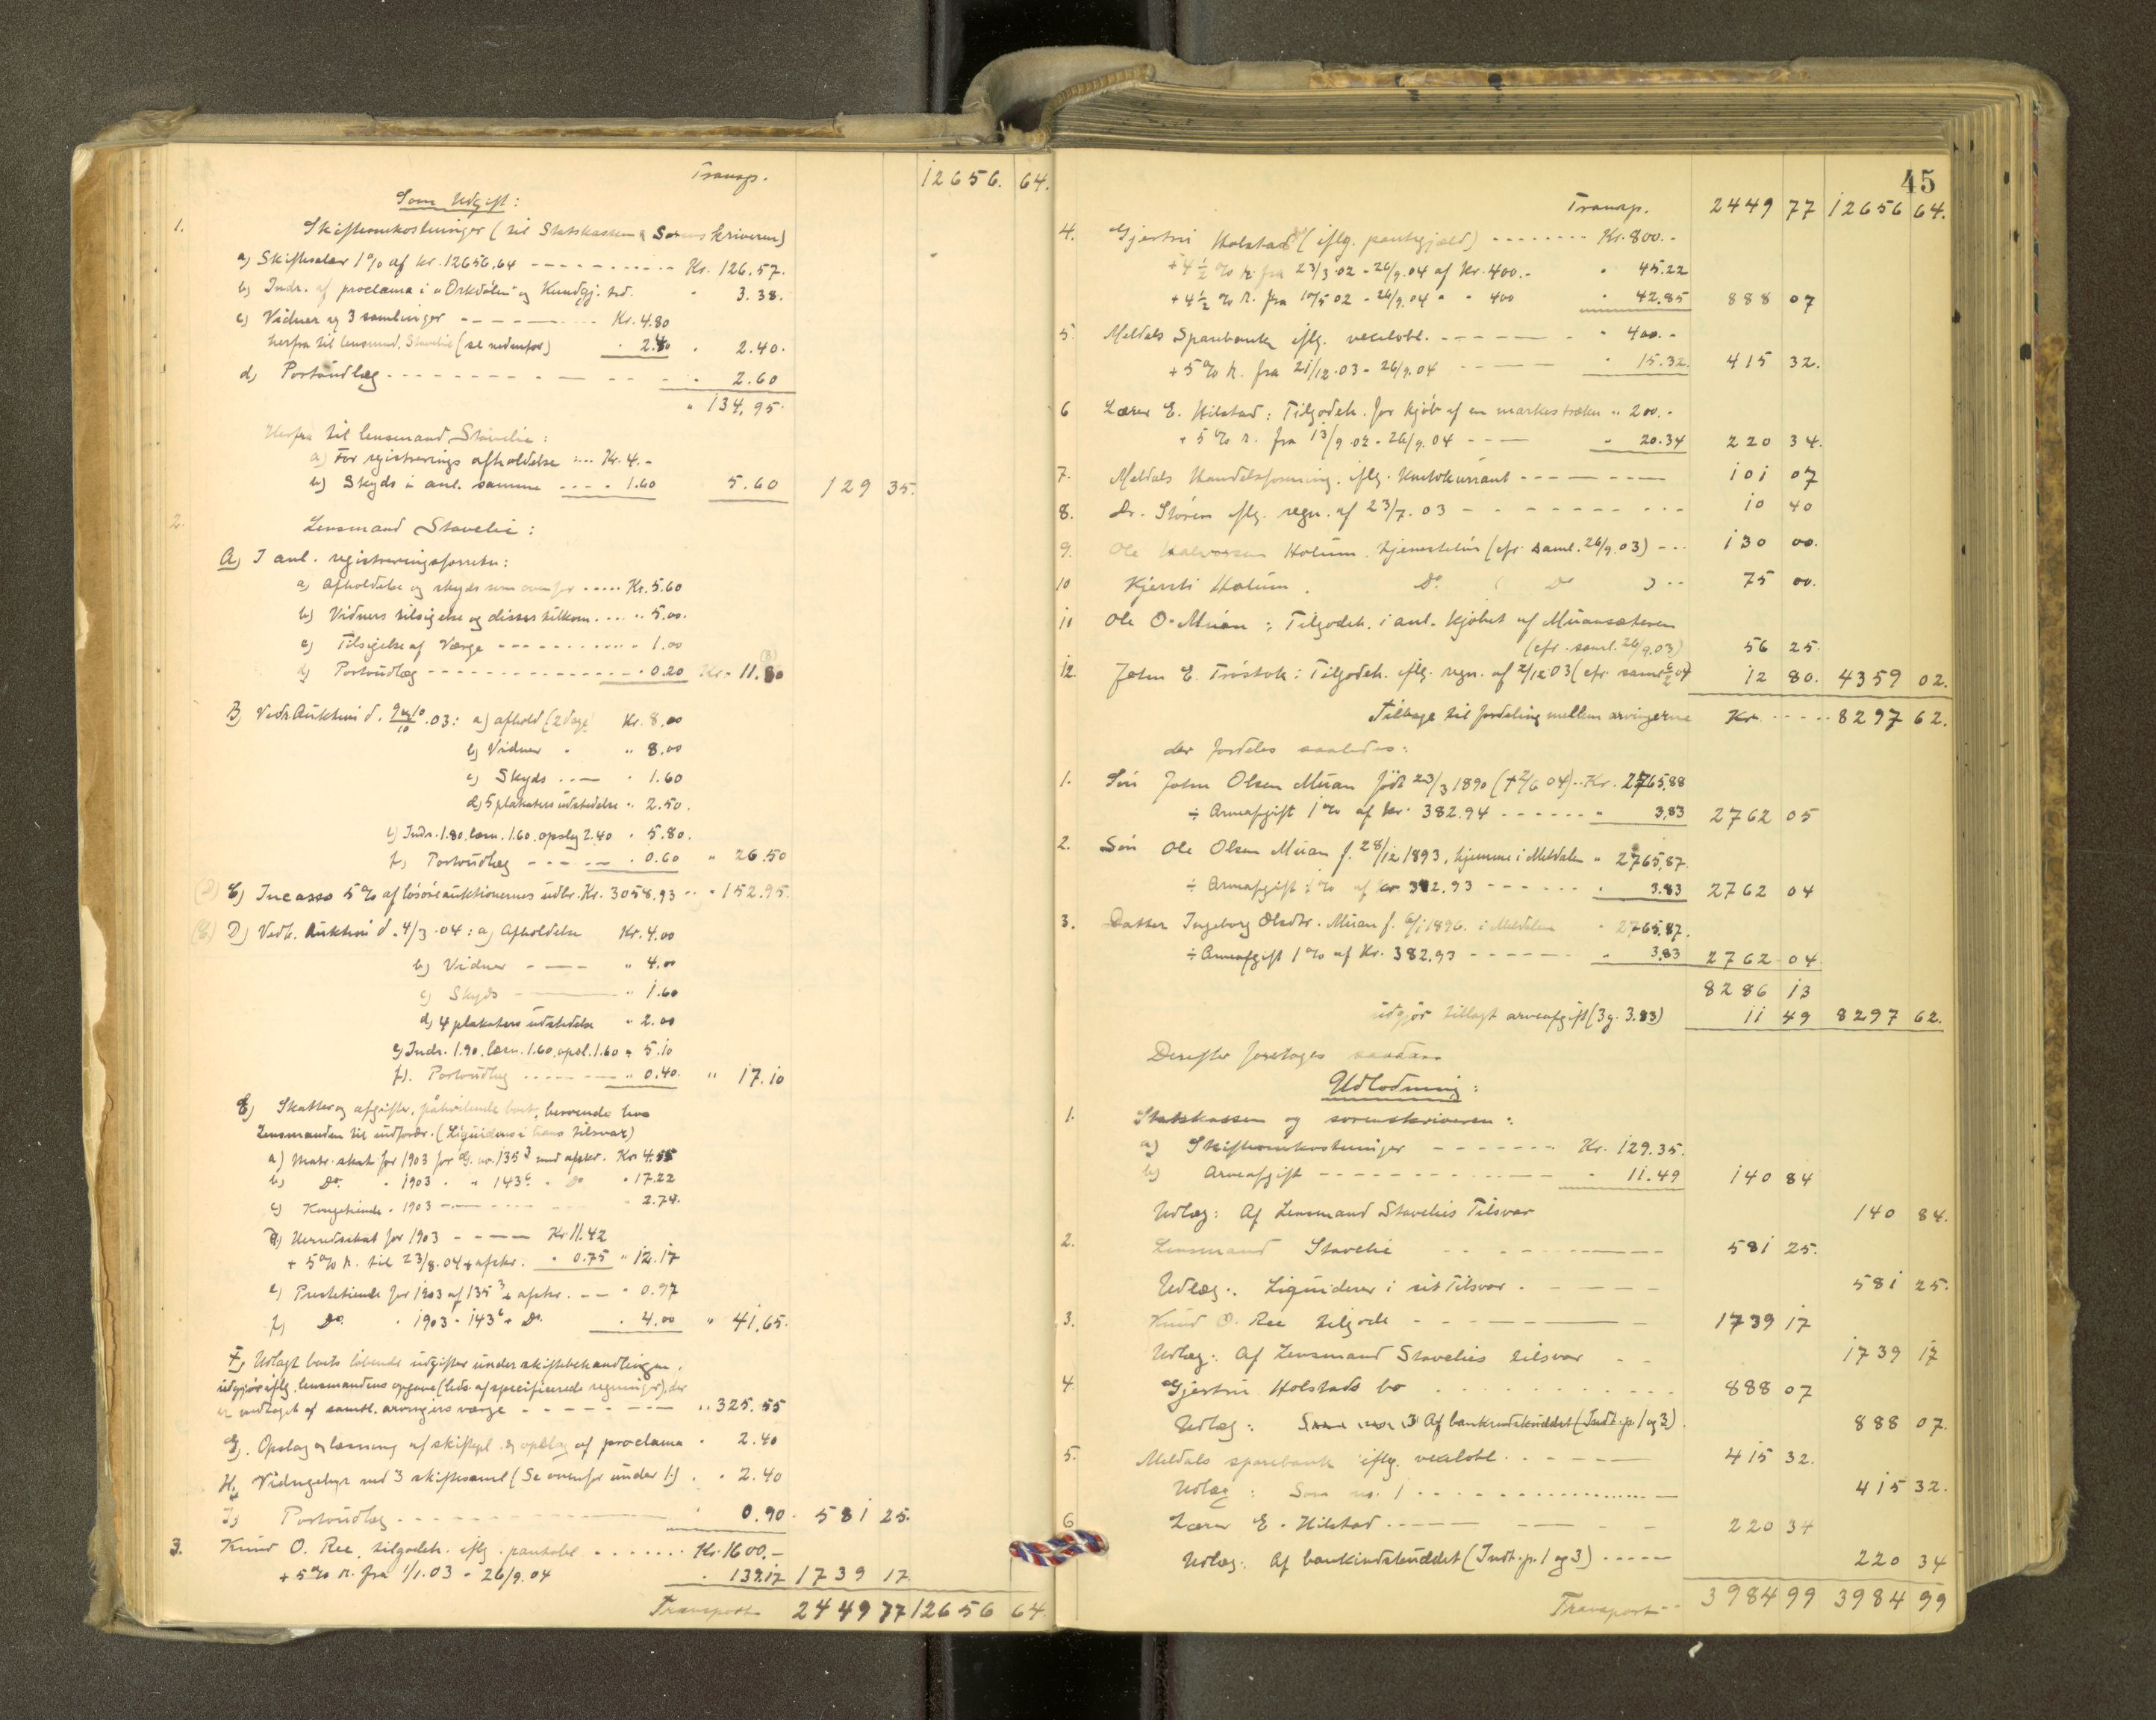 Transp. 12656. 64.
Som Udgift:
1. Skifteomkostninger (til Statskassen & Sorenskriveren)
a) Skiftesalær 1% af kr. 12656.64 - - - - - - - - - Kr. 126.57.
b) Indr. af proclama i "Orkdølen" og Kundgj. tid. " 3.38.
c) Vidner og 3 samlinger - - - - - - - Kr. 4.80
herfra til lensmand Stavelie (se nedenfor) " 2.40 " 2.40.
d) Portoudlæg - - - - - - - - - - - - " 2.60
" 134.95.
Herfra til lensmand Stavelie:
a) For registrerings afholdelse .... Kr. 4.-
b) Skyds i anl. samme - - - - 1.60 5.60 129 35.
2. Lensmand Stavelie:
A) I anl. registreringsforretn:
a) Afholdelse og skyds som ovenfor ..... Kr. 5.60
b) Vidners tilsigelse og disses tilkom. ... " 5.00.
c) Tilsigelse af Værge - - - - - - - - - - 1.00
d) Portoudlæg - - - - - - - - - - - - 0.20 Kr. 11.80
B) Vedr. Auktion d. 9 og 10/10.03: a) afhold (2 dage) Kr. 8.00
b) Vidner " " 8.00
c) Skyds - - - " 1.60
d) 5 plakaters udstedelse " 2.50.
e) Indr. 1.80, læsn. 1.60, opslag 2.40 " 5.80.
f) Portoudlæg - - - - - " 0.60 " 26.50
C) Incasso 5% af løsøreauktionernes udbr. Kr. 3058.93 - - " 152.95.
D) Vedr. Auktion d. 4/3.04: a) Afholdelse Kr. 4.00
b) Vidner - - - - " 4.00
c) Skyds - - - - " 1.60
d) 4 plakaters udstedelse " 2.00
e) Indr. 1.90, læsn. 1.60, opsl. 1.60 " 5.10
f). Portoudlæg - - - - - " 0.40. " 17.10
E) Skatter og afgifter, påhvilende boet, beroende hos
Lensmanden til indfordr. (Liquideres i hans tilsvar)
a) Matr. skat for 1903 for G. no. 135³ med afskr. Kr. 4.55
b) Do. " 1903 " " 143⁶ " Do " 17.22
c) Kongetiende " 1903 - - - - - " 2.74.
d) Herredsskat for 1903 - - - - - Kr. 11.42
+ 5% r. til 23/8.04 + afskr. " 0.75 " 12.17
e) Prestetiende for 1903 af 135³ + afskr. - - " 0.97
f) Do. " 1903 " 143⁶ + Do. " 4.00 " 41.65.
F) Udlagt boets løbende udgifter under skiftebehandlingen,
udgjør iflg. lensmandens opgave (leds. af specificerede regninger), der
er vedtaget af samtl. arvingers værge - - - - - - - " 325.55
G. Opslag og læsning af skifteyl. og opslag af proclama " 2.40
H. Vidnegebyr ved 3 skiftesaml. (Se ovenfor under 1.) " 2.40
I) Portoudlæg - - - - - - - - - - 0.90. 581 25.
3. Knud O. Ree, tilgodeh. iflg. pantobl. - - - - - - Kr. 1600.-
+ 5% r. fra 1/1.03 - 26/9.04 " 139.17 1739 17.
Transport 2449 77 12656 64.
45
Transp. 2449 77 12656 64.
4. Gjertru Holstad (iflg. pantegjæld) - - - - - - - - Kr. 800.-
+ 4 ½ % r. fra 23/3.02 - 26/9.04 af Kr. 400.- " 45.22
+ 4 ½ % r. fra 10/5 02 - 26/9.04 " " 400 " 42.85 888 07
5. Meldals Sparebank iflg. vexelobl. - - - - - - - " 400.-
+ 5% r. fra 21/12.03 - 26/9.04 - - - - - " 15.32. 415 32.
6 Lærer E. Hilstad: Tilgodeh. for kjøb af en markestrækn " 200.-
+ 5% r. fra 13/9.02 - 26/9.04 - - - " 20.34 220 34.
7. Meldals Handelsforening. iflg. Kontokurant - - - - - - 101 07
8. Dr. Støren iflg. regn. af 23/7.03 - - - - - - - - - 10 40
9. Ole Halvorsen Holum. tjenesteløn (cfr. saml. 26/9.03) - - - 130 00.
10 Kjersti Holum. Do. ( Do ) - - 75 00.
11 Ole O. Muan: Tilgodeh. i anl. kjøbet af Muansæteren
(cfr. saml. 26/9.03) 56 25.
12. John E. Trøstok: Tilgodeh. iflg. regn. af 2/12 03 (cfr. saml. 6/2 04) 12 80. 4359 02.
Tilbage til fordeling mellem arvingerne Kr. - - - - 8297 62.
der fordeles saaledes:
1. Søn John Olsen Muan født 23/3 1890 († 2/6 04) .. Kr. 2765.88
÷ Arveafgift 1% af kr. 382.94 - - - - - - " 3.83 2762 05
2. Søn Ole Olsen Muan f. 28/12 1893, hjemme i Meldalen " 2765.87.
÷ Arveafgift 1% af kr. 382.93 - - - - - - " 3.83 2762 04
3. Datter Ingeborg Olsdtr. Muan f. 6/1 1896. i Meldalen " 2765.87.
÷ Arveafgift 1% af Kr. 382.93 - - - - - - " 3.83 2762 04.
8286 13
udgjør tillagt arveafgift (3 g. 3.83) 11 49 8297 62.
Derefter foretages saadan
Udlodning:
1. Statskassen og sorenskriveren:
a) Skifteomkostninger - - - - - - - Kr. 129.35.
b) Arveafgift - - - - - - - - - " 11.49 140 84
Udlæg: Af Lensmand Stavelies Tilsvar 140 84.
2. Lensmand Stavelie - - - - - - - - 581 25.
Udlæg: Liquiderer i sit Tilsvar - - - - - 581 25.
3. Knud O. Ree tilgode - - - - - - - - - 1739 17
Udlæg: Af Lensmand Stavelies tilsvar - - 1739 17
4. Gjertru Holstads bo - - - - - - - - - 888 07
Udlæg: Som no. 3 Af bankindskuddet (Indt. p. 1 og 3). 888 07.
5. Meldals sparebank iflg. vexelobl. - - - - - - 415 32.
Udlæg: Som no. 1 - - - - - - - - - 415 32.
6 Lærer E. Hilstad - - - - - - - - 220 34
Udlæg: Af bankindskuddet (Indt. p. 1 og 3) - - - - - 220 34
Transport - - 3984 99 3984 99